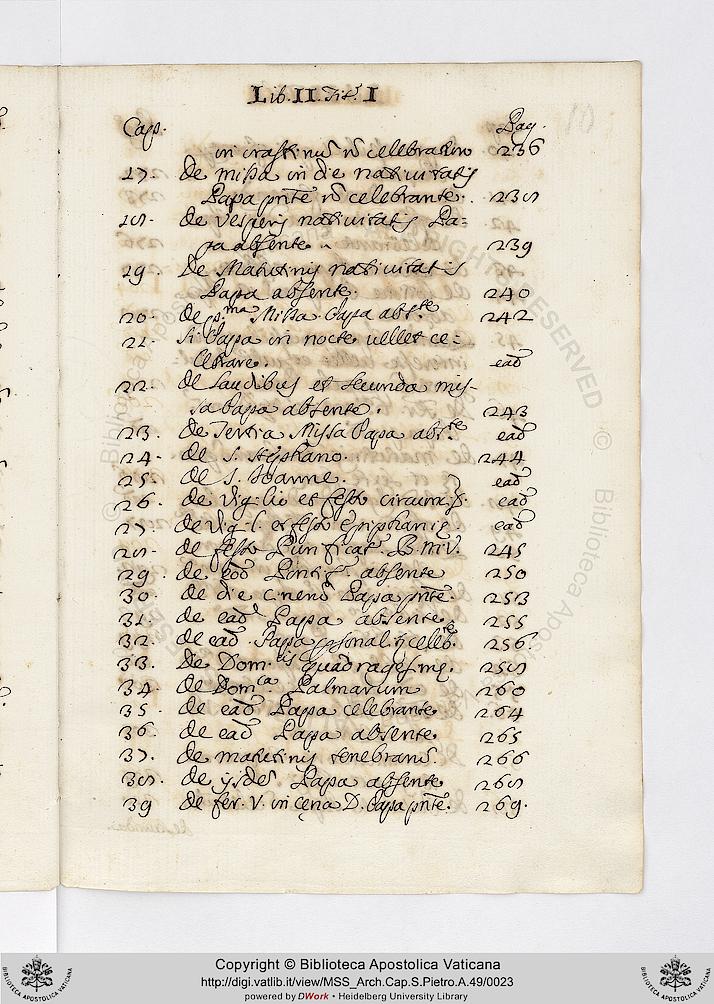 Lib. II. Tit. I
Cap. Pag.
in crastinũ nõ celebratur 236
17. de missa in die nativitatis
Papa pnte nõ celebrante. 238
18. de Vesperis nativitatis Pa-
pa absente. 239
19. De Matutinis nativitatis
Papa absente. 240
20. de p.ma Missa Papa abs.te 242
21. si Papa in nocte vellet ce-
lebrare. ead
22. de Laudibus et secunda mis-
sa Papa absente. 243
23. de Tertia Missa Papa abs.te ead
24. de S. Stephano. 244
25. de S. Joanne. ead
26. de Vigilia et festo ead
27. de Vigil. et festo Epiphaniȩ. ead
28. de festo Purificat. B.M.V. 245
29. de eod Pontif. absente 250
30. de die cinerũ Papa pnte. 253
31. de ead Papa absente. 255
32. de ead. Papa 256.
33. De Dom.cis quadragesimȩ. 258
34. de Dom.ca Palmarum 260
35. de ead Papa celebrante 264
36. de ead Papa absente 265
37. de matutinis tenebrarũ. 266
38. de ijsdẽ Papa absente 268
39 de fer. V. in cȩna D. Papa pnte. 269.
10
Copyright © Biblioteca Apostolica Vaticana
http://digi.vatlib.it/view/MSS_Arch.Cap.S.Pietro.A.49/0023
powered by DWork • Heidelberg University Library
BIBLIOTECA APOSTOLICA VATICANA
BIBLIOTECA APOSTOLICA VATICANA